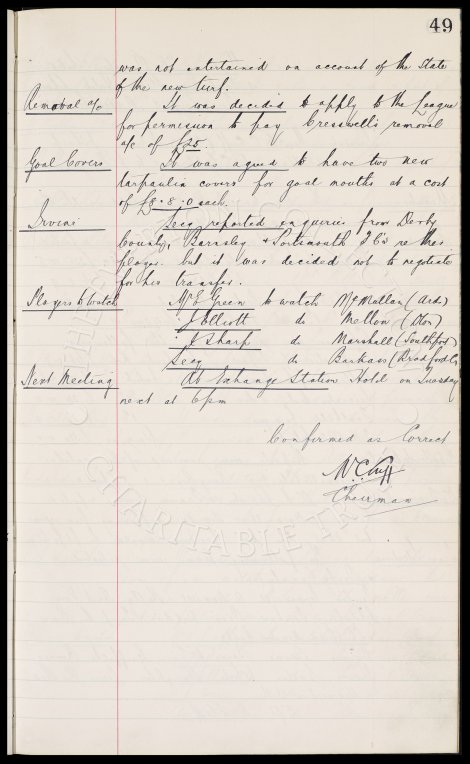 49
was not entertained on account of the State
of the new turf.
Removal a/c It was decided to apply to the League
for permission to pay Cresswell's removal
a/c of £20
Goal Covers It was agreed to have two new
tarpaulin covers for goal mouths at a cost
of £8.8.0 each.
Irvine Secy reported enquiries from Derby
County, Barnsley & Portsmouth F.C's re this
player but it was decided not to negotiate
for his transfer.
Players to watch Mr E Green to watch McMullan (Ards)
" J Elliott do Mellon (Ton)
" J Sharp do Marshall (Southport)
Secy do Barkas (Bradford C)
Next Meeting At Exchange Station Hotel on Tuesday
next at 6pm
Confirmed as Correct
W.C. Cuff
Chairman
CHARITABLE